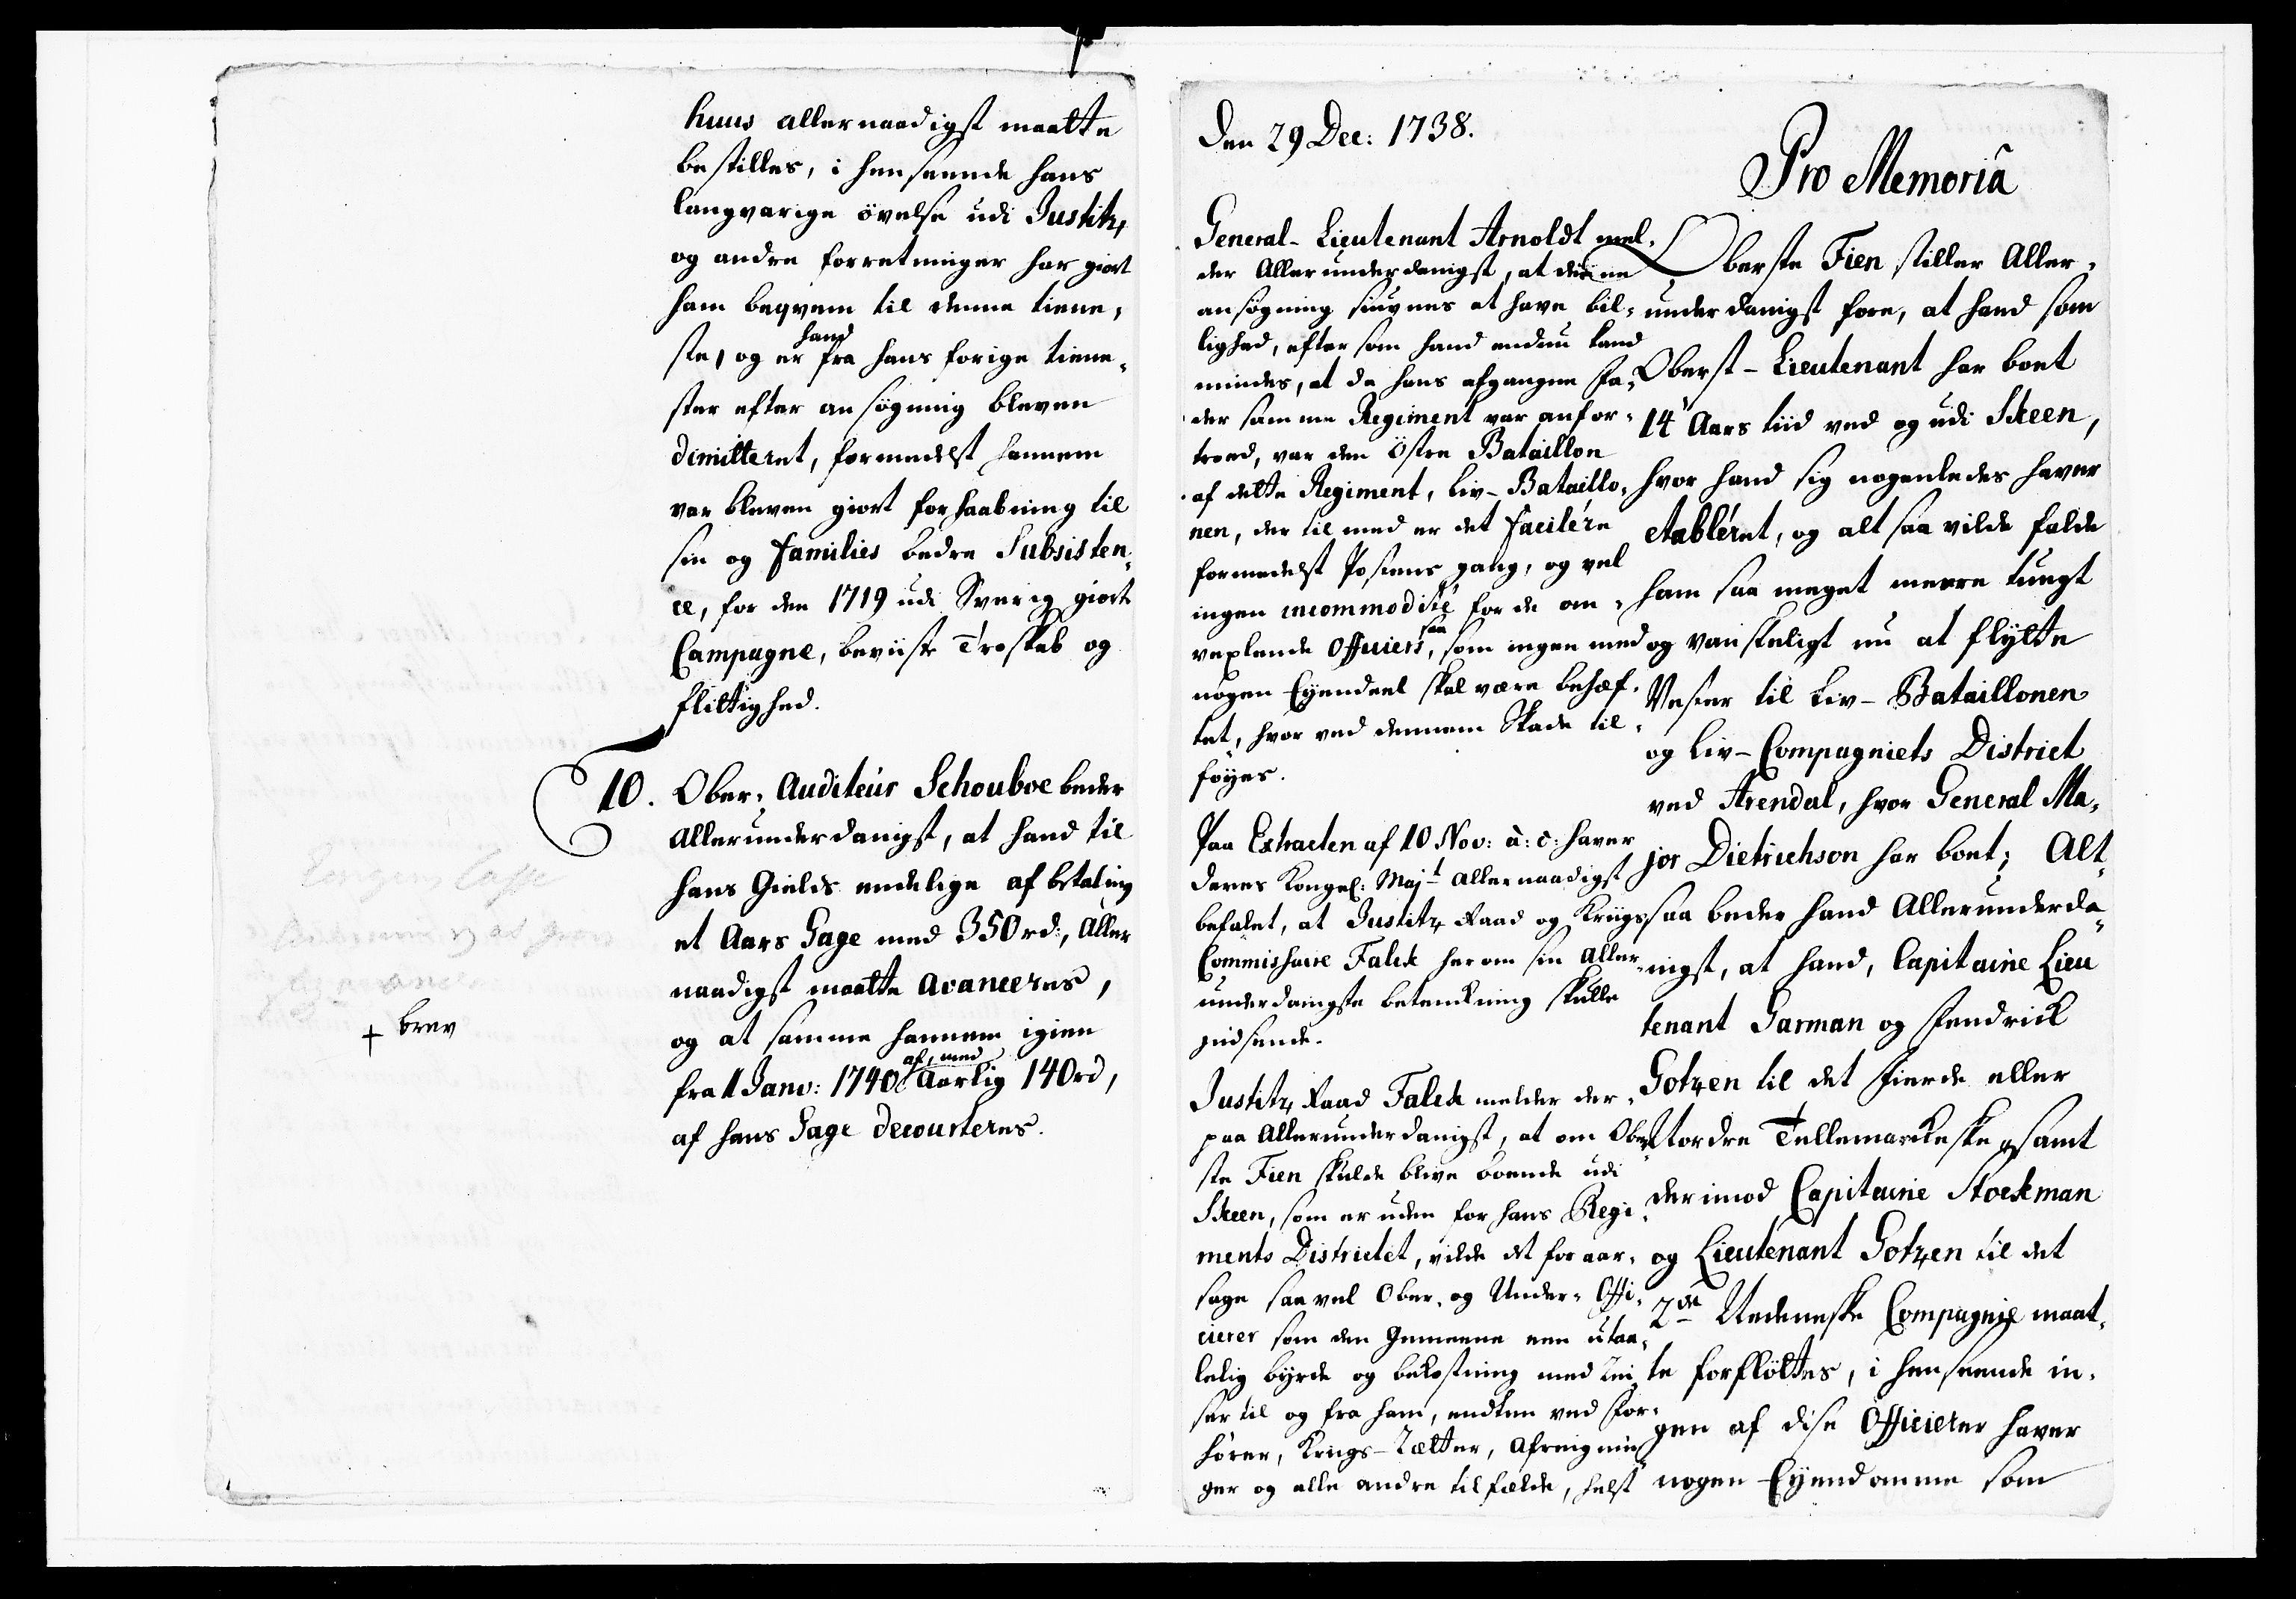 huus allernaadigst maatte
bestilles, i henseende hans
langvarige övelse udi Justitz,
og andre forretninger har giort
ham beqvem til denne tiene,
hand
ste, og er fra hans forige tiene,
ster efter ansögning bleven
dimitteret, formedelst hannem
var bleven giort forhaabning til
sin og families bedre Subsisten,
ce, for den 1719 udi Sverig giorte
Campagne, beviiste Troskab og
flittighed.
10. Ober, Auditeur Schouboe beder
Allerunderdanigst, at hand til
hans Gields endelige afbetaling
et Aars Gage med 350 rd:, Aller
naadigst maatte avanceres,
og at samme hannem igien
af, med
fra 1 Janv: 1740 Aarlig 140 rd,
af hans Gage decourteres.
+ brev
Den 29 Dec: 1738.
General-Lieutenant Arnoldt mel,
der Allerunderdanigst, at denne
ansögning siuynes at have bil,
lighed, eftersom hand endnu kand
mindes, at da hans afgangne Fa,
der samme Regiment var anfor,
troed, var den Östre Bataillon
af dette Regiment, Liv-Bataillo,
nen, der til med er det facilére
formedelst Postens gang, og vel
ingen incommodité for de om,
saa
vexlende Officiers, som ingen med
nogen Eyendeel skal være behæf,
tet, hvor ved dennem Skade til,
föyes.
Paa Extracten af 10 Nov: a: c: haver
Deres Kongel: Majt Allernaadigst
befalet, at Justitz Raad og Kriigs
Commissaire Falck her om sin Aller,
underdanigste betenckning skulle
indsende.
Justitz Raad Falck melder der,
paa Allerunderdanigst, at om Ober,
ste Fien skulde blive boende udi
Skeen, som er uden for hans Regi,
ments Districtet, vilde det foraar,
sage saa vel Ober, og Under, Offi,
cierer som den Gemeene een utaa,
lelig byrde og bekostning med Rei,
ser til og fra ham, endten ved For,
hörer, Krigs-Rætter, Afreignin,
ger og alle andre tilfælde, helst
Pro Memoriâ
Oberste Fien stiller Aller,
underdanigst fore, at hand som
Oberst-Lieutenant har boet
14 Aars tiid ved og udi Skeen,
hvor hand sig nogenledes haver
etabléret, og alt saa vilde falde
ham saa meget meere tungt
og vanskeligt nu at flytte
Vester til Liv-Bataillonen
og Liv-Compagniets District
ved Arendal, hvor General Ma,
jor Dietrichson har boet; Alt,
saa beder hand Allerunderda,
nigst, at hand, Capitaine Lieu
tenant Garman og Fendrick
Gotzen til det Fierde eller
Nordre Tellemarckeske, samt
derimod Capitaine Stockman
og Lieutenant Gotzen til det
2de Nedeneske Compagnie maat,
te forflöttes, i henseende in,
gen af dise Officierer haver
nogen Eyendomme som